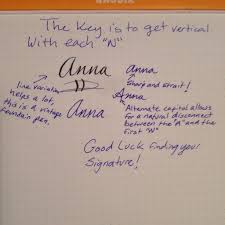 RHODIA
The key is to get vertical
With each "N"
Anna
Anna
Sharp and strait!
line variation
helps a lot,
this is a vintage
fountain pen.
Anna
Anna
Alternate capitol allows
for a natural disconnect
between the "A" and the
first "N"
Good Luck finding your
Signature!